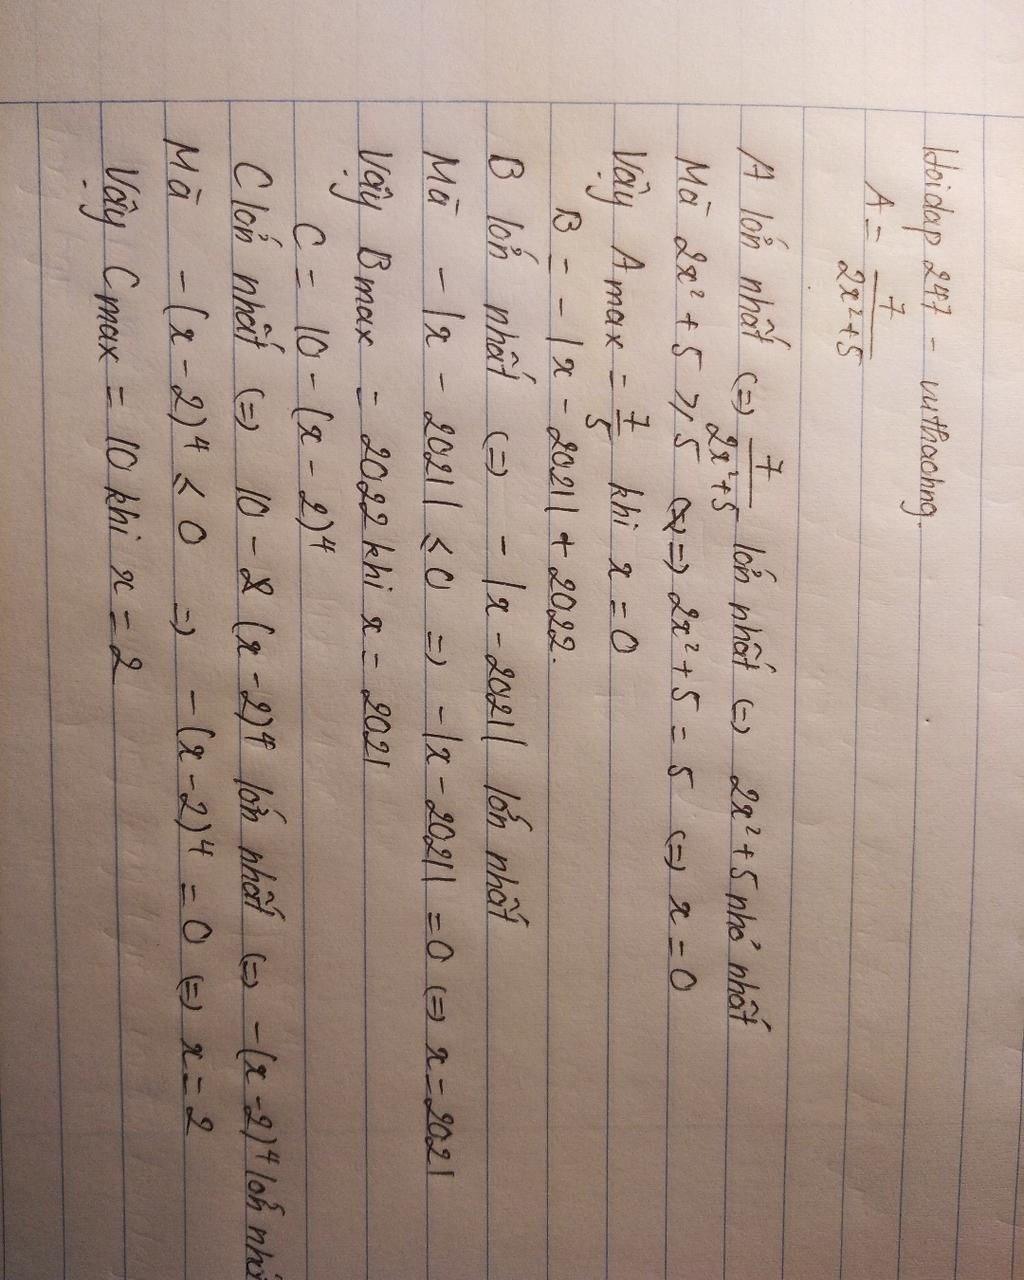 Hoidap 247 - vuthachng.
A = 7/(2x² + 5)
A lớn nhất (=) 7/(2x² + 5) lớn nhất (=) 2x² + 5 nhỏ nhất
Mà 2x² + 5 ≥ 5 (=) 2x² + 5 = 5 (=) x = 0
Vậy Amax = 7/5 khi x = 0
B = - |x - 2021| + 2022.
B lớn nhất (=) - |x - 2021| lớn nhất
Mà - |x - 2021| ≤ 0 =) - |x - 2021| = 0 (=) x = 2021
Vậy Bmax = 2022 khi x = 2021
C = 10 - (x - 2)⁴
C lớn nhất (=) 10 - (x - 2)⁴ lớn nhất (=) - (x - 2)⁴ lớn
Mà - (x - 2)⁴ ≤ 0 =) - (x - 2)⁴ = 0 (=) x = 2
Vậy Cmax = 10 khi x = 2